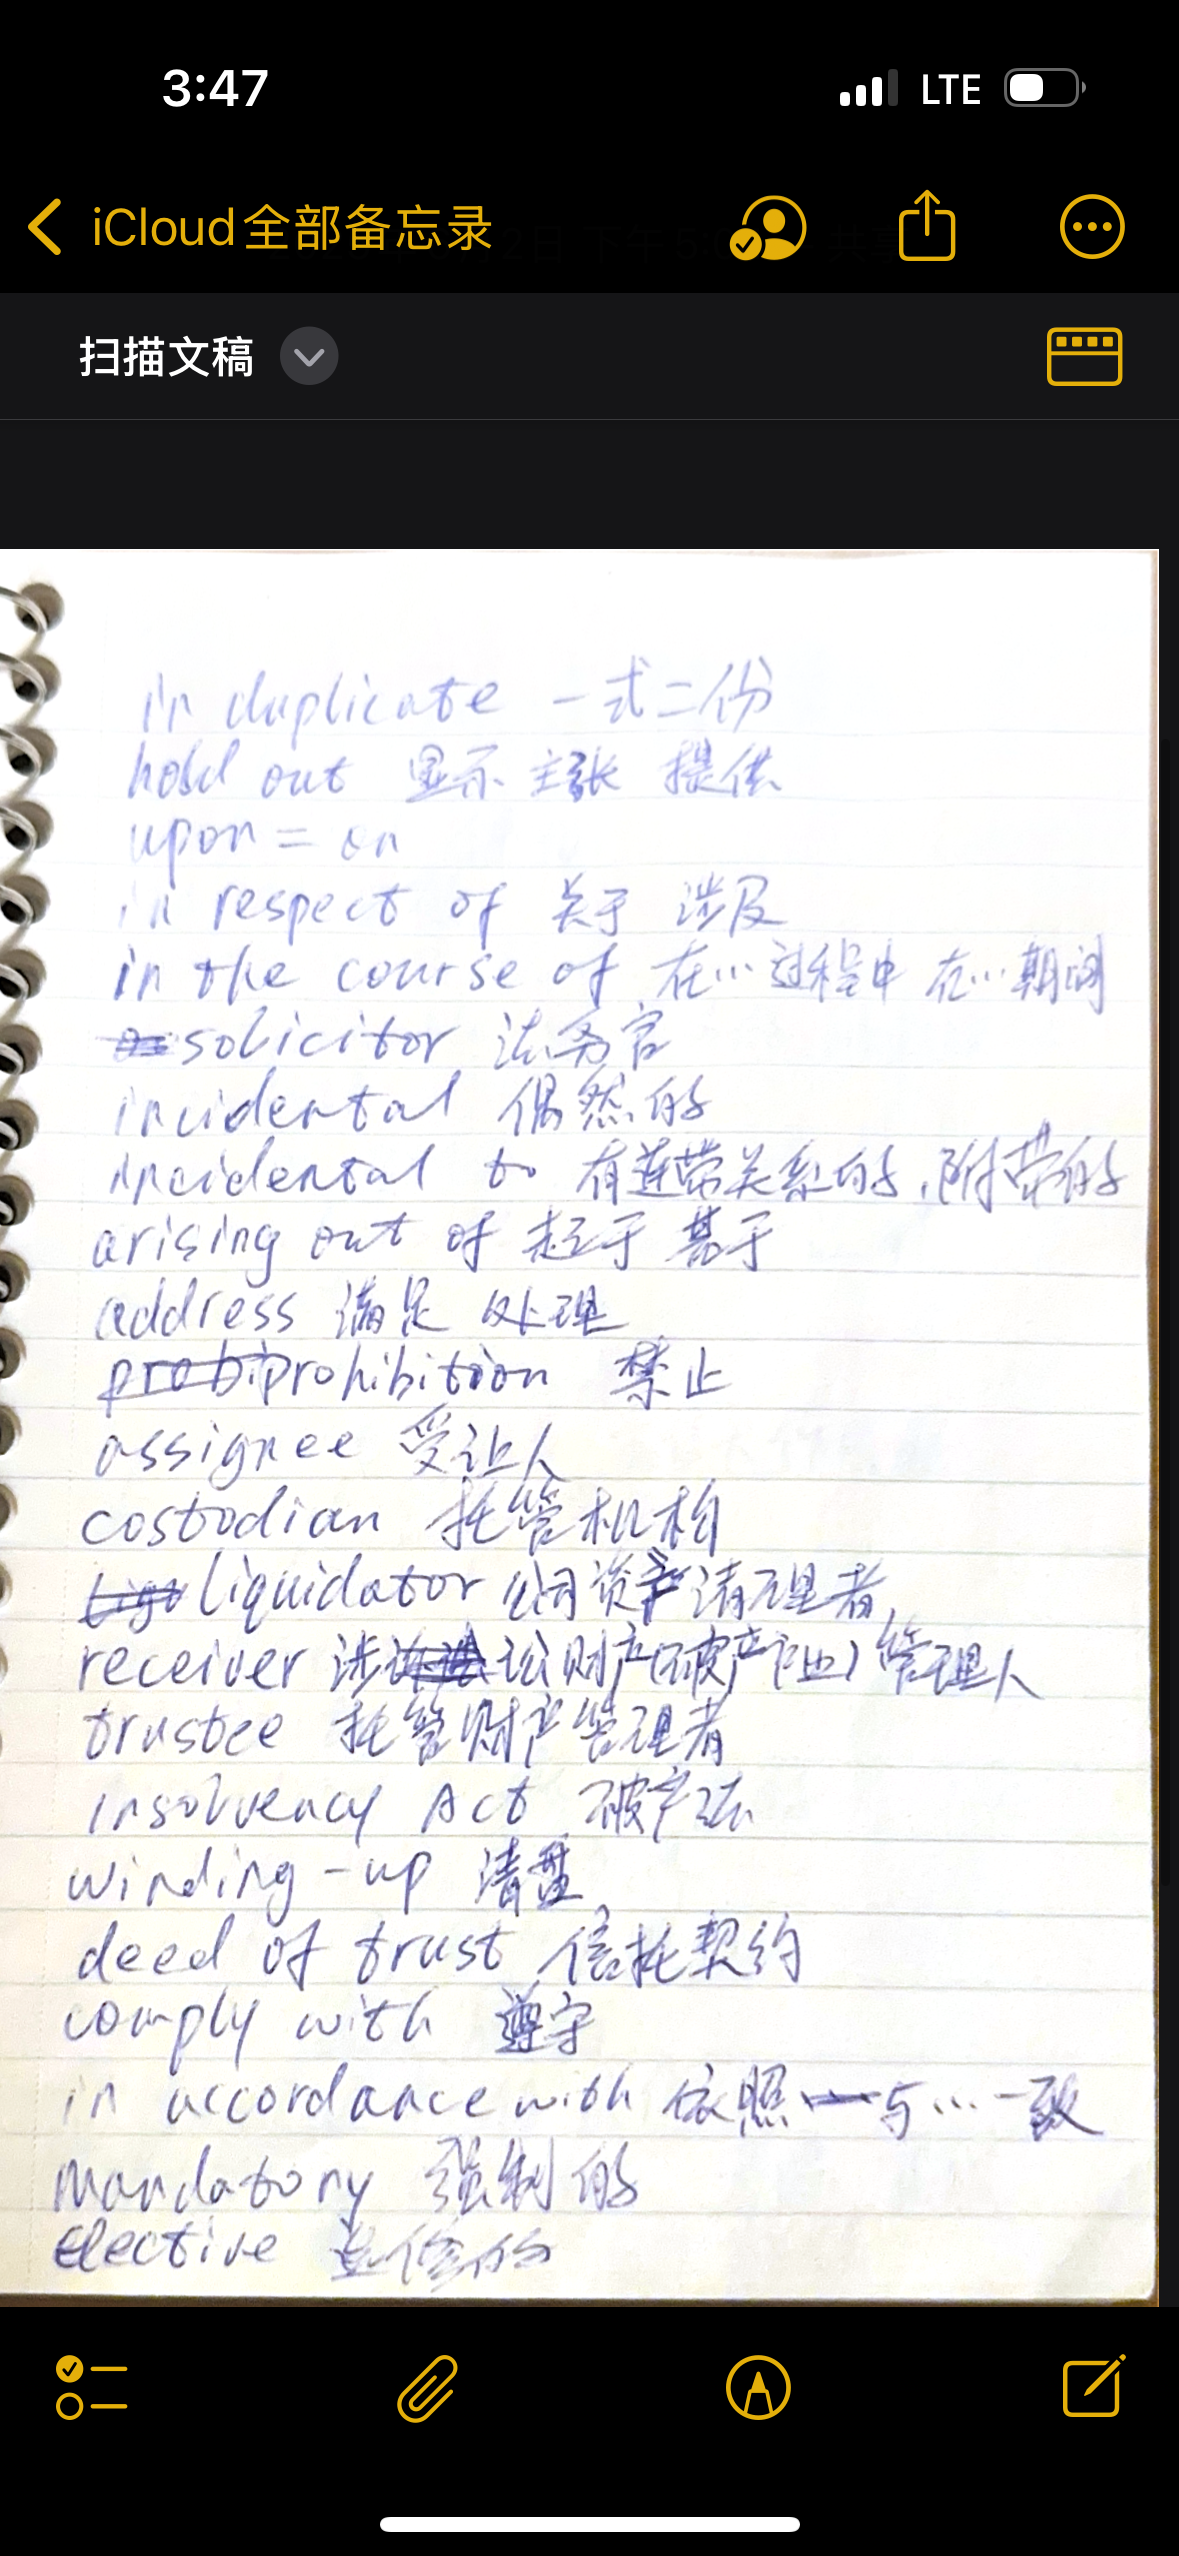 3:47 LTE
iCloud全部备忘录
扫描文稿
in duplicate 一式二份
hold out 显示 主张 提供
upon = on
in respect of 关于 涉及
in the course of 在…过程中 在…期间
solicitor 法务官
incidental 偶然的
incidental to 有连带关系的,附带的
arising out of 起于 基于
address 满足 处理
prohibition 禁止
assignee 受让人
costodian 托管机构
liquidator 公司资产清理者
receiver 涉讼财产(破产产业)管理人
trustee 托管财产管理者
insolvency Act 破产法
winding-up 清盘
deed of trust 信托契约
comply with 遵守
in accordance with 依照 与…一致
mandatory 强制的
elective